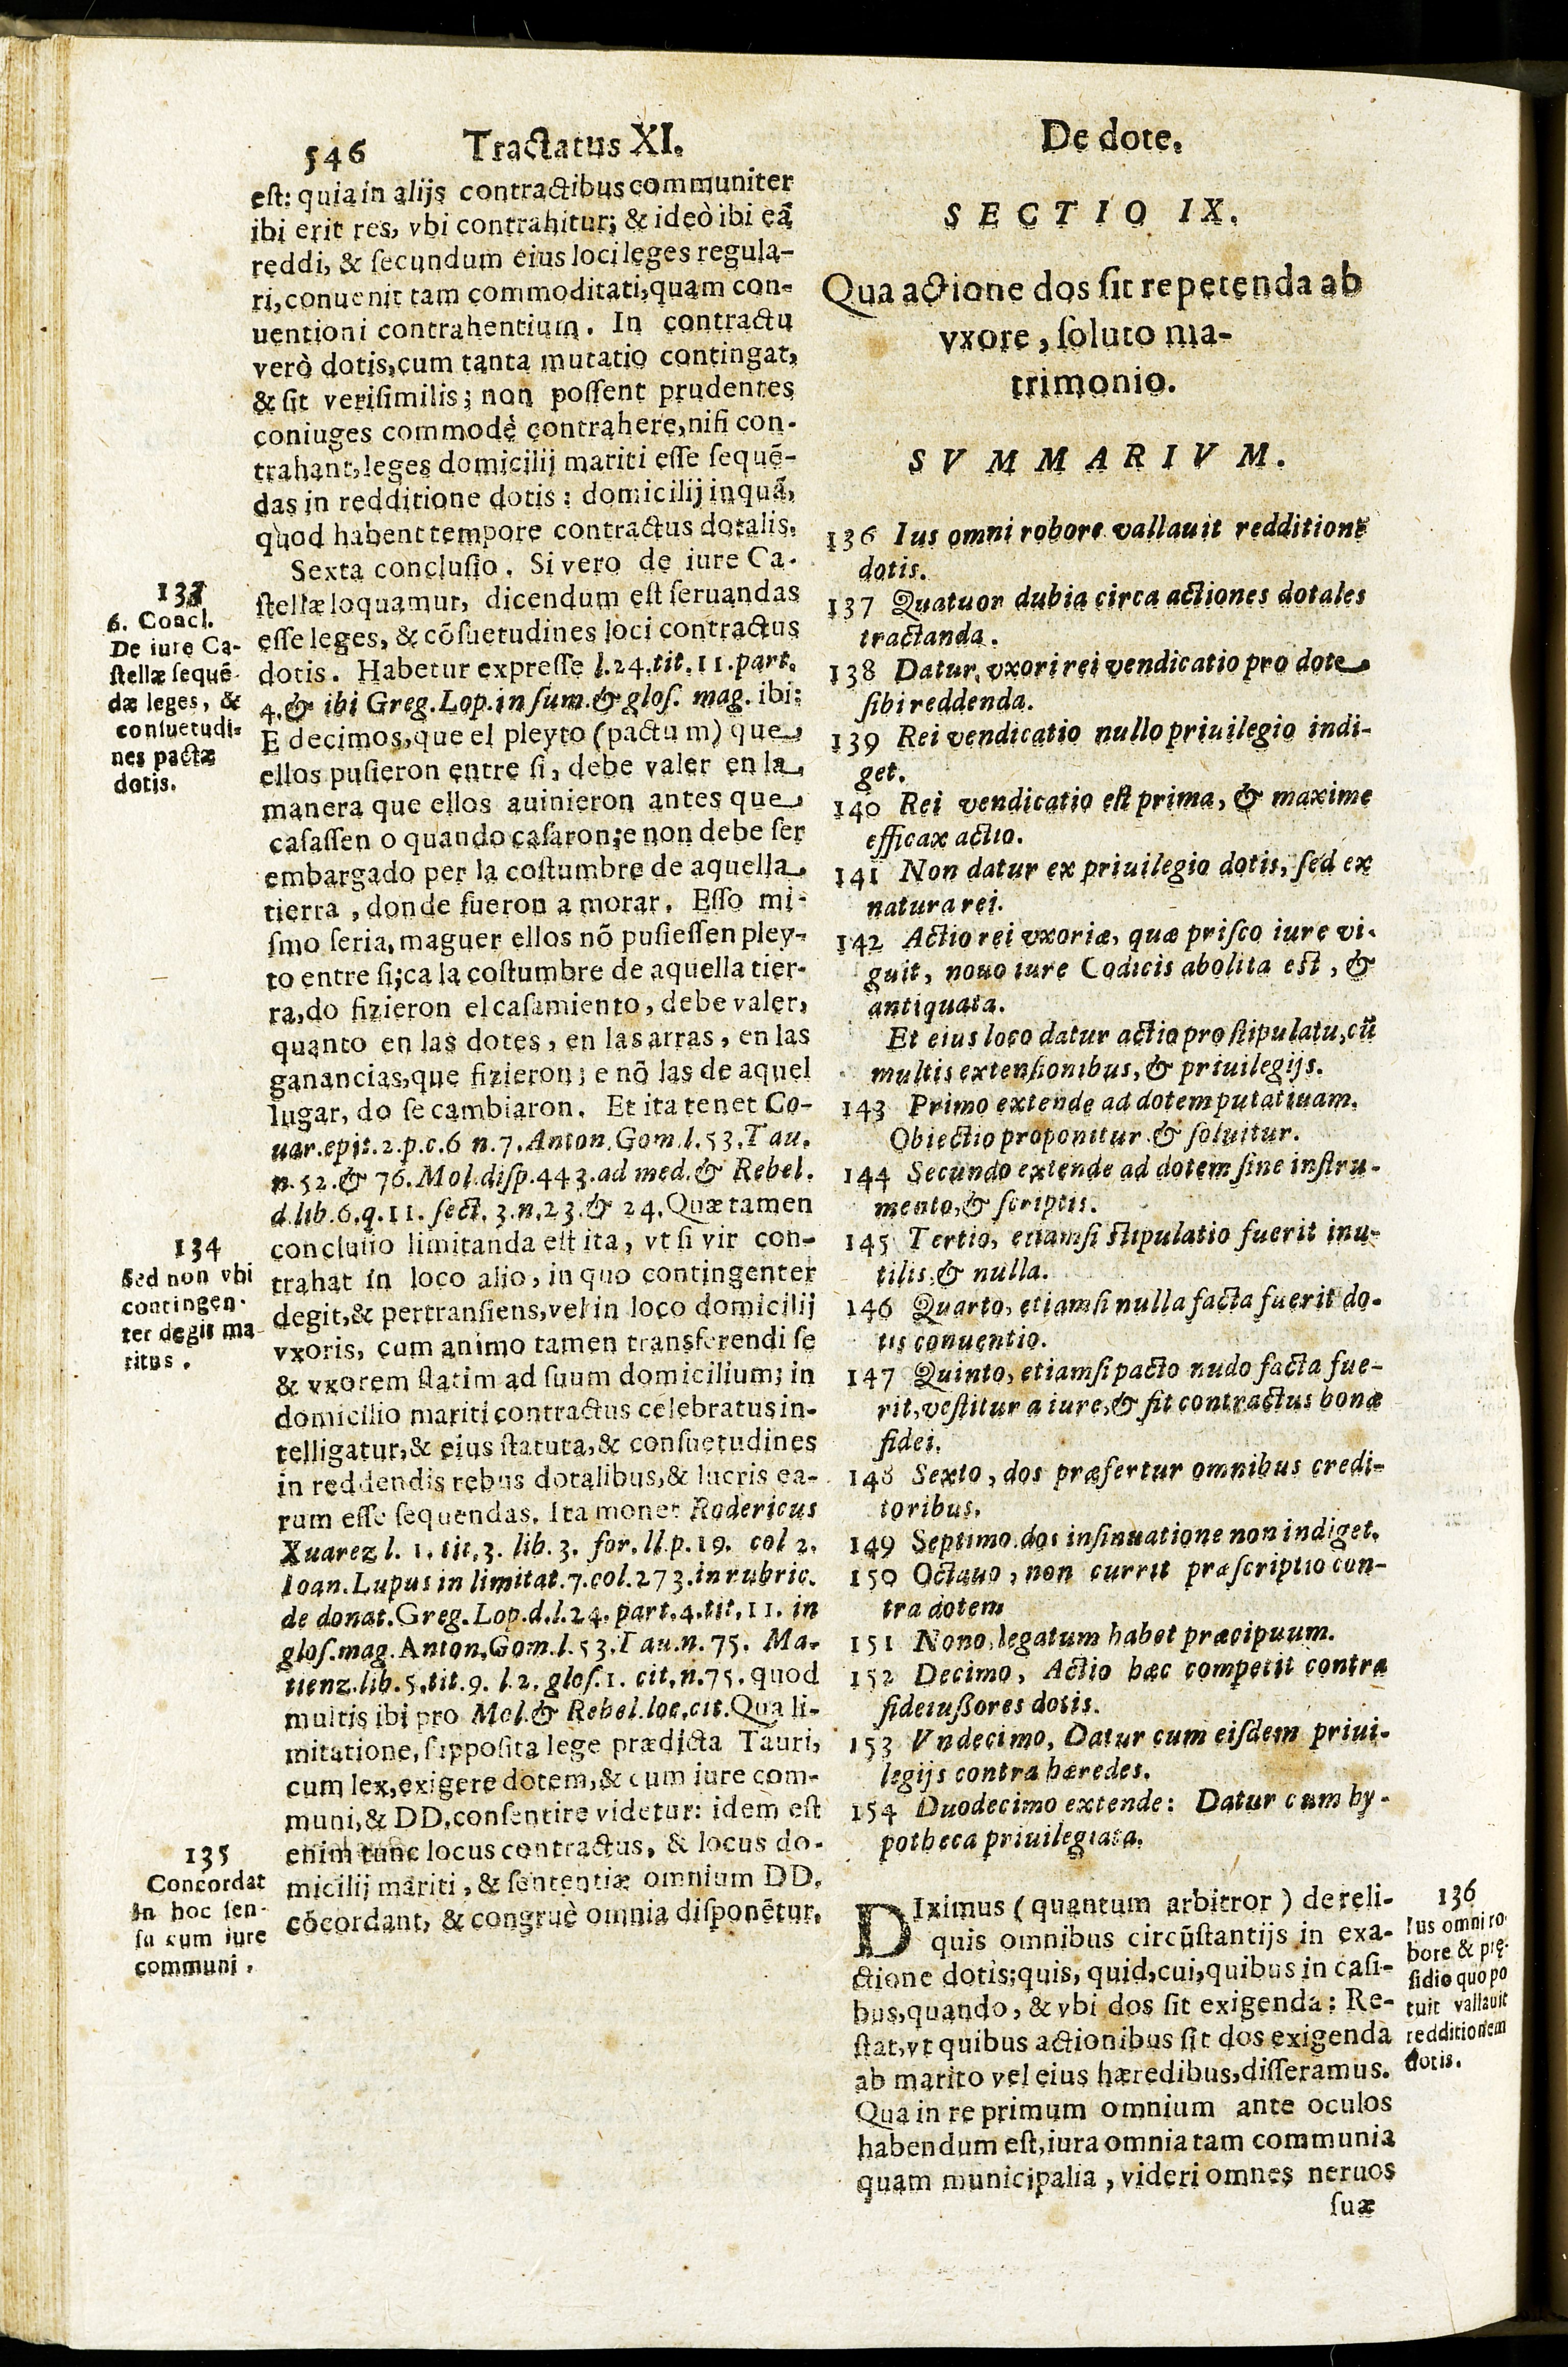 546 Tractatus XI. De dote.
eſt: quia in alijs contractibus communiter
ibi erit res, vbi contrahitur; & ideò ibi eã
reddi, & ſecundum eius loci leges regula-
ri, conuenit tam commoditati, quam con-
uentioni contrahentium. In contractu
verò dotis, cum tanta mutatio contingat,
& ſit veriſimilis; non poſſent prudentes
coniuges commodè contrahere, niſi con-
trahant, leges domicilij mariti eſſe ſequẽ-
das in redditione dotis: domicilij inquã,
quòd habent tempore contractus dotalis.
133
6. Concl.
De iure Ca-
ſtellæ ſequẽ-
dæ leges, &
conſuetudi-
nes pactæ
dotis.
Sexta concluſio. Si vero de iure Ca-
ſtellæ loquamur, dicendum eſt ſeruandas
eſſe leges, & cõſuetudines loci contractus
dotis. Habetur expreſſe l. 24. tit. 11. part.
4. & ibi Greg. Lop. in ſum. & gloſ. mag. ibi:
E decimos, que el pleyto (pactum) que
ellos puſieron entre ſi, debe valer en la
manera que ellos auinieron antes que
caſaſſen o quando caſaron; e non debe ſer
embargado per la coſtumbre de aquella
tierra, donde fueron a morar. Eſſo mi-
ſmo ſeria, maguer ellos nõ puſieſſen pley-
to entre ſi; ca la coſtumbre de aquella tier-
ra, do fizieron el caſamiento, debe valer,
quanto en las dotes, en las arras, en las
ganancias, que fizieron; e nõ las de aquel
lugar, do ſe cambiaron. Et ita tenet Co-
uar. epit. 2. p. c. 6 n. 7. Anton. Gom. l. 53. Tau.
n. 52. & 76. Mol. diſp. 443. ad med. & Rebel.
d. lib. 6. q. 11. ſect. 3. n. 23. & 24. Quæ tamen
134
Sed non vbi
contingen-
ter degit ma
ritus.
concluſio limitanda eſt ita, vt ſi vir con-
trahat in loco alio, in quo contingenter
degit, & pertranſiens, vel in loco domicilij
vxoris, cum animo tamen transferendi ſe
& vxorem ſtatim ad ſuum domicilium; in
domicilio mariti contractus celebratus in-
telligatur, & eius ſtatuta, & conſuetudines
in reddendis rebus dotalibus, & lucris ea-
rum eſſe ſequendas. Ita monet Rodericus
Xuarez l. 1. tit. 3. lib. 3. for. ll. p. 19. col 2.
Ioan. Lupus in limitat. 7. col. 273. in rubric.
de donat. Greg. Lop. d. l. 24. part. 4. tit. 11. in
gloſ. mag. Anton. Gom. l. 53. Tau. n. 75. Ma-
tienz. lib. 5. tit. 9. l. 2. gloſ. 1. cit. n. 75. quod
multis ibi pro Mol. & Rebel. loc. cit. Qua li-
mitatione, ſuppoſita lege prædicta Tauri,
cum lex, exigere dotem, & cum iure com-
muni, & DD. conſentire videtur: idem eſt
135
Concordat
in hoc ſen-
ſu cum iure
communi.
enim tunc locus contractus, & locus do-
micilij mariti, & ſententiæ omnium DD.
cõcordant, & congruè omnia diſponẽtur.
SECTIO IX.
Qua actione dos ſit repetenda ab
vxore, ſoluto ma-
trimonio.
SVMMARIVM.
136 Ius omni robore vallauit redditione
dotis.
137 Quatuor dubia circa actiones dotales
tractanda.
138 Datur vxori rei vendicatio pro dote
ſibi reddenda.
139 Rei vendicatio nullo priuilegio indi-
get.
140 Rei vendicatio eſt prima, & maxime
efficax actio.
141 Non datur ex priuilegio dotis, ſed ex
natura rei.
142 Actio rei vxoriæ, quæ priſco iure vi-
guit, nouo iure Codicis abolita eſt, &
antiquata.
Et eius loco datur actio pro ſtipulatu, cũ
multis extenſionibus, & priuilegijs.
143 Primo extende ad dotem putatiuam.
Obiectio proponitur & ſoluitur.
144 Secundo extende ad dotem ſine inſtru-
mento, & ſcriptis.
145 Tertio, etiamſi ſtipulatio fuerit inu-
tilis, & nulla.
146 Quarto, etiamſi nulla facta fuerit do-
tis conuentio.
147 Quinto, etiamſi pacto nudo facta fue-
rit, veſtitur a iure, & ſit contractus bonæ
fidei.
148 Sexto, dos præfertur omnibus credi-
toribus.
149 Septimo, dos inſinuatione non indiget.
150 Octauo, non currit præſcriptio con-
tra dotem
151 Nono, legatum habet præcipuum.
152 Decimo, Actio hæc competit contra
fideiußores dotis.
153 Vndecimo, Datur cum eiſdem priui-
legijs contra hæredes.
154 Duodecimo extende: Datur cum hy-
potheca priuilegiata.
DIximus (quantum arbitror) de reli-
quis omnibus circũſtantijs in exa-
ctione dotis; quis, quid, cui, quibus in caſi-
bus, quando, & vbi dos ſit exigenda: Re-
ſtat, vt quibus actionibus ſit dos exigenda
ab marito vel eius hæredibus, diſſeramus.
Qua in re primum omnium ante oculos
habendum eſt, iura omnia tam communia
quam municipalia, videri omnes neruos
ſuæ
136
Ius omni ro-
bore & pręſidio quo po
tuit vallauit
redditionem
dotis.